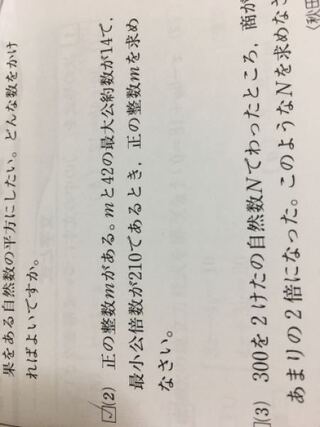 果をある自然数の平方にしたい。どんな数をかけ
ればよいですか。
(2) 正の整数mがある。mと42の最大公約数が14で,
最小公倍数が210であるとき, 正の整数mを求め
なさい。
〈秋田
(3) 300を2けたの自然数Nでわったところ, 商が
あまりの2倍になった。このようなNを求めなさ